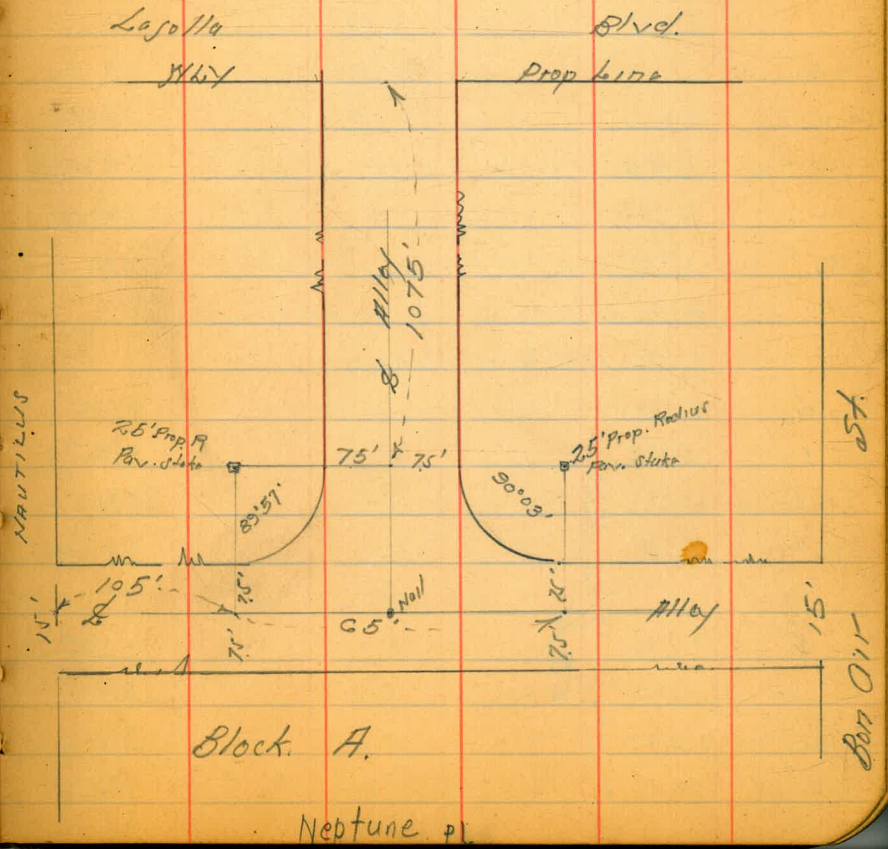 Lajolla Blvd.
Wly Prop Line
℄ Alley
1075'
NAUTILUS
25' Prop. R
Pav. stake
75' 75'
25' Prop. Radius
Pav. Stake
St.
89°57'
90°03'
105'
75'
75'
Nail
65'
75'
75'
15'
℄
Alley
15'
Bon Air
Block. A.
Neptune pl